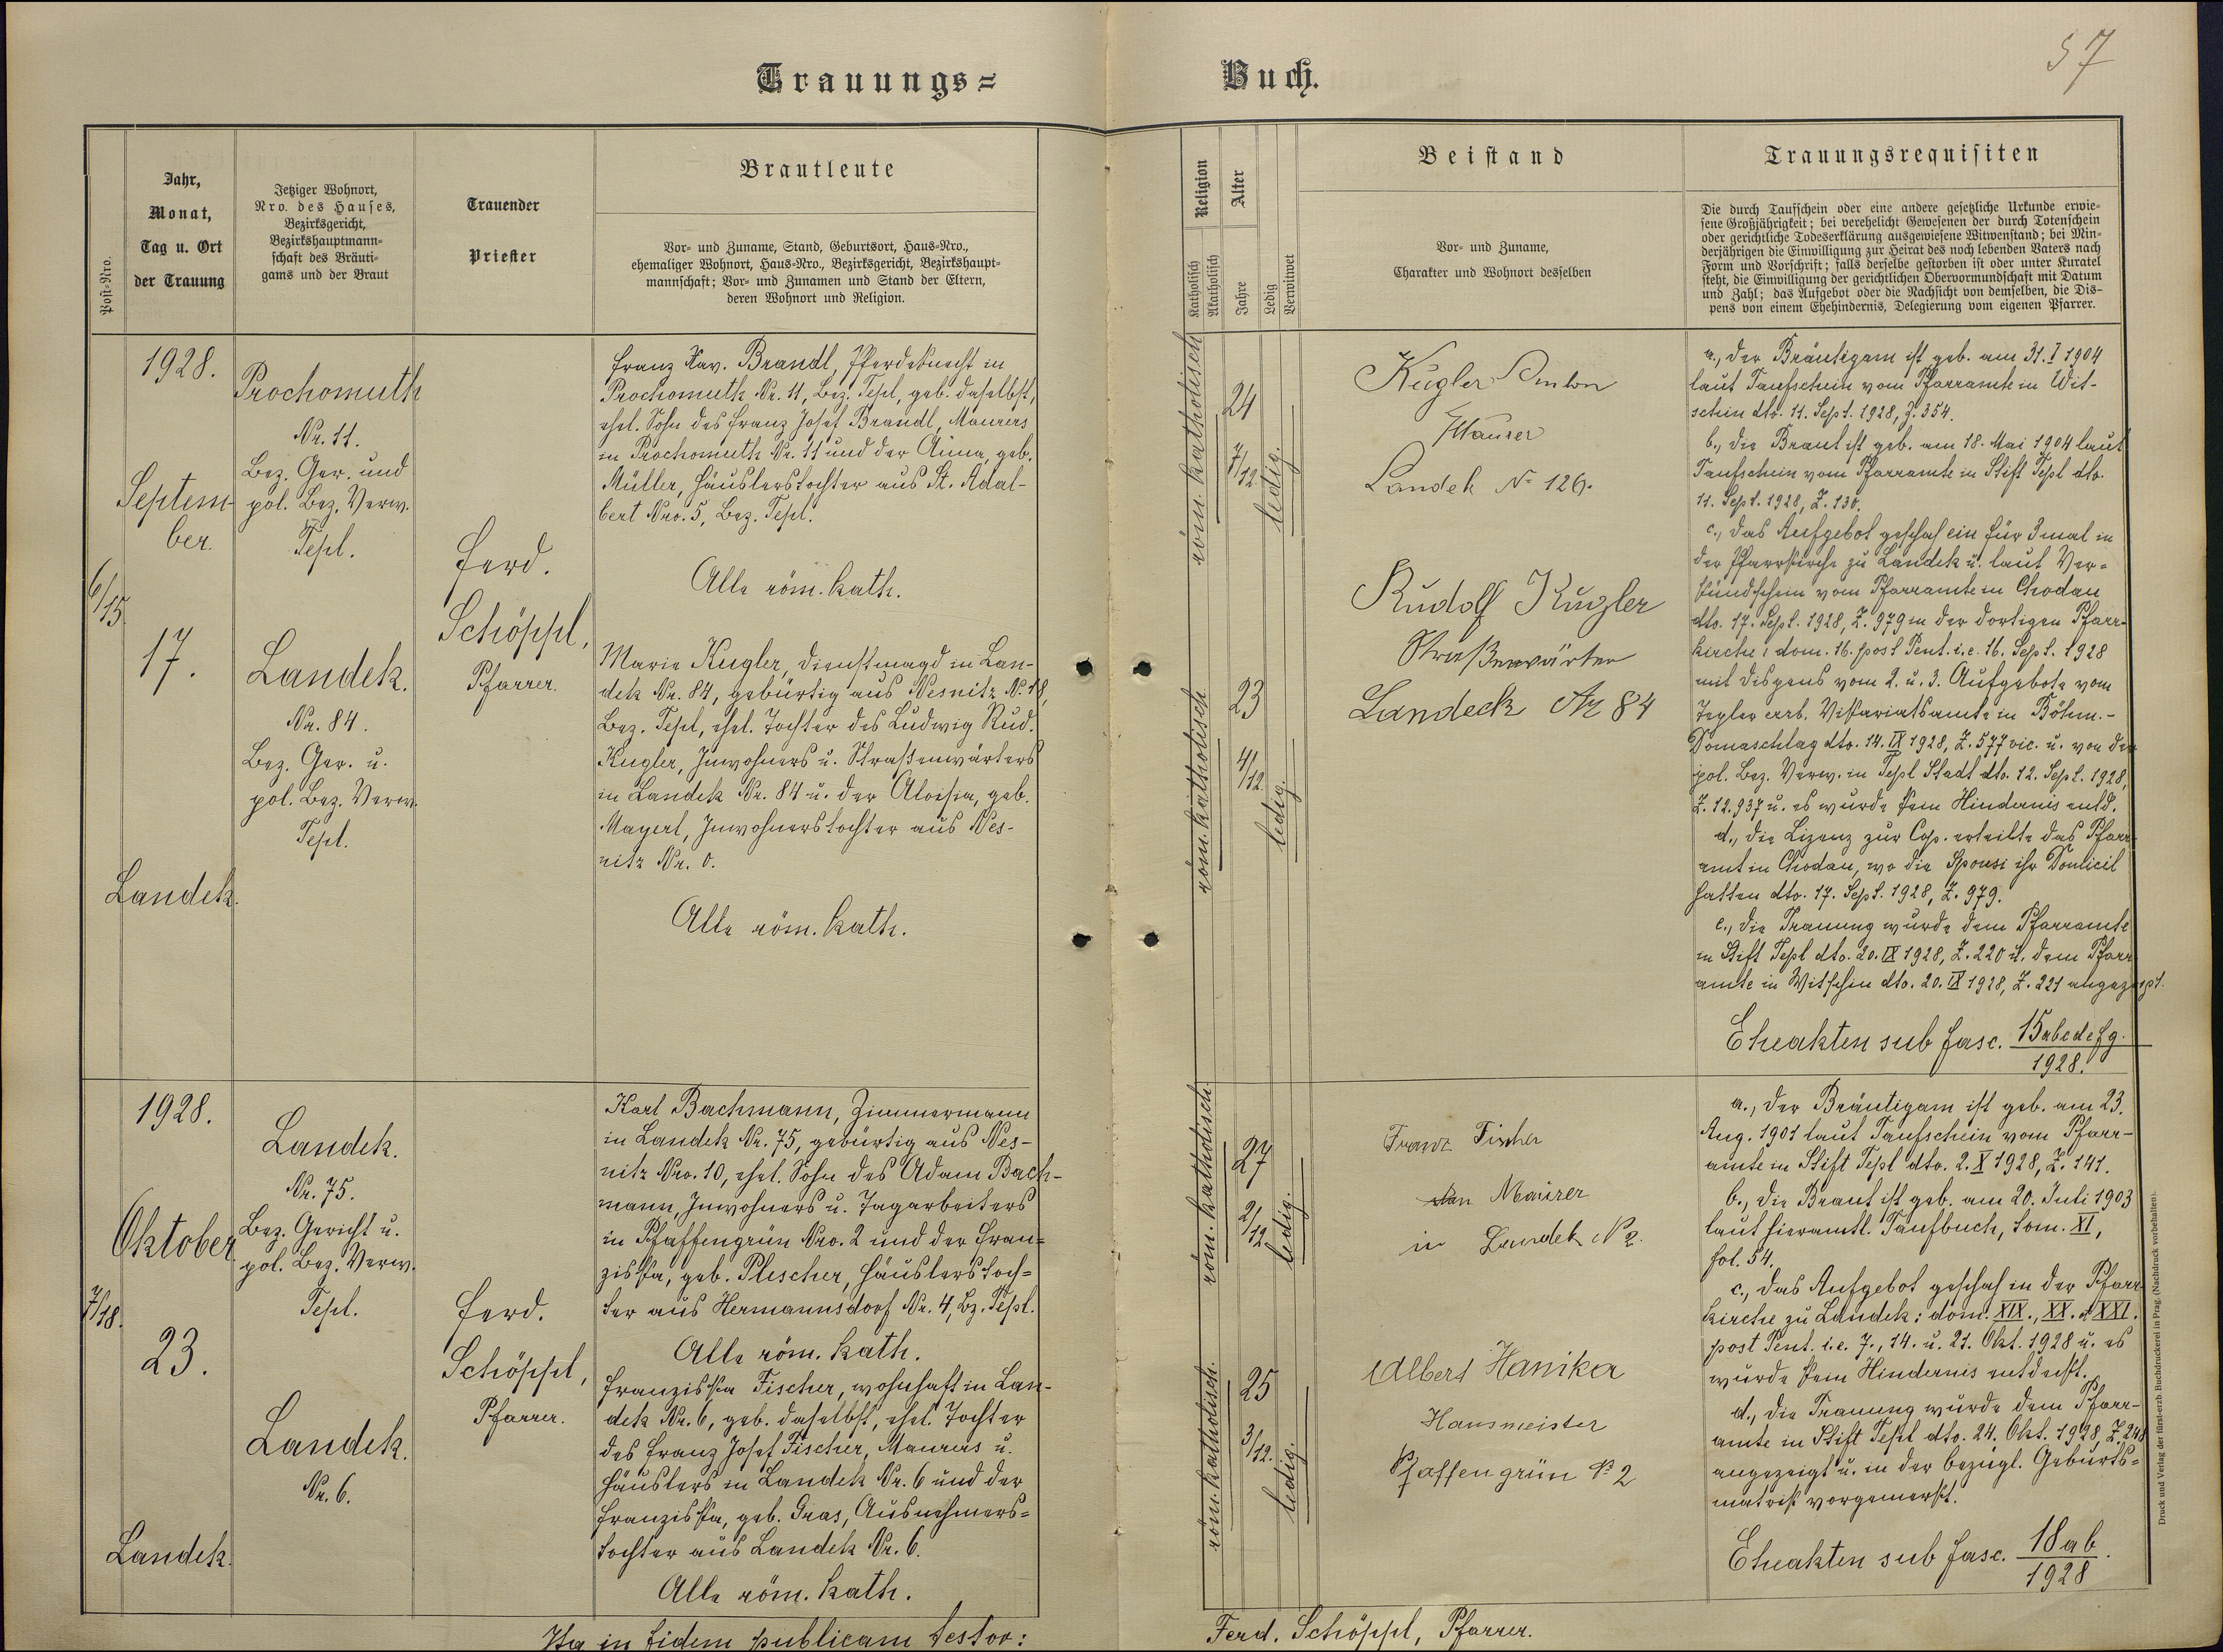 57
Trauungs= Buch.
Post-Nro.
Jahr,
Monat,
Tag u. Ort
der Trauung
Jetziger Wohnort,
Nro. des Hauses,
Bezirksgericht,
Bezirkshauptmann=
schaft des Bräuti=
gams und der Braut
Trauender
Priester
Brautleute
Vor- und Zuname, Stand, Geburtsort, Haus-Nro.,
ehemaliger Wohnort, Haus-Nro., Bezirksgericht, Bezirkshaupt=
mannschaft; Vor- und Zunamen und Stand der Eltern,
deren Wohnort und Religion.
Religion
Katholisch
Akatholisch
Alter
Jahre
Ledig
Verwitwet
Beistand
Vor- und Zuname,
Charakter und Wohnort desselben
Trauungsrequisiten
Die durch Taufschein oder eine andere gesetzliche Urkunde erwie=
sene Großjährigkeit; bei verehelicht Gewesenen der durch Totenschein
oder gerichtliche Todeserklärung ausgewiesene Witwenstand; bei Min=
derjährigen die Einwilligung zur Heirat des noch lebenden Vaters nach
Form und Vorschrift; falls derselbe gestorben ist oder unter Kuratel
steht, die Einwilligung der gerichtlichen Obervormundschaft mit Datum
und Zahl; das Aufgebot oder die Nachsicht von demselben, die Dis=
pens von einem Ehehindernis, Delegierung vom eigenen Pfarrer.
6/15
1928.
Septem-
ber.
17.
Landek.
Prochomuth
Nr. 11.
Bez. Ger. und
pol. Bez. Verw.
Tepl.
Landek.
Nr. 84.
Bez. Ger. u.
pol. Bez. Verw.
Tepl.
Ferd.
Schöppl,
Pfarrer.
Franz Xav. Brandl, Pferdeknecht in
Prochomuth Nr. 11, Bez. Tepl, geb. daselbst,
ehel. Sohn des Franz Josef Brandl, Maurers
in Prochomuth Nr. 11 und der Anna, geb.
Müller, Häuslerstochter aus St. Adal-
bert Nro. 5, Bez. Tepl.
Alle röm. kath.
Marie Kugler, Dienstmagd in Lan-
dek Nr. 84, gebürtig aus Wesnitz No 18,
Bez. Tepl, ehel. Tochter des Ludwig Rud.
Kugler, Inwohners u. Straßenwärters
in Landek Nr. 84 u. der Aloisia, geb.
Mayerl, Inwohnerstochter aus Wes-
nitz Nr. 0.
Alle röm. kath.
röm. katholisch
24
7/12.
ledig.
röm. katholisch
23
4/12.
ledig.
Kugler Anton
Maurer
Landek No 126.
Rudolf Kugler
Straßenwärter
Landeck Nr 84
a., Der Bräutigam ist geb. am 31. I 1904
laut Taufschein vom Pfarramte in Wit-
schin dto. 11. Sept. 1928, Z. 354.
b., Die Braut ist geb. am 18. Mai 1904 laut
Taufschein vom Pfarramte in Stift Tepl dto.
11. Sept. 1928, Z. 130.
c., Das Aufgebot geschah ein für 3mal in
der Pfarrkirche zu Landek u. laut Ver=
kündschein vom Pfarramte in Chodau
dto. 17. Sept. 1928, Z. 979 in der dortigen Pfarr-
kirche: dom. 16. post Pent. i. e. 16. Sept. 1928
mit Dispens vom 2. u. 3. Aufgebote vom
Tepler erzb. Vikariatsamte in Böhm.-
Domaschlag dto. 14. IX 1928, Z. 577 vic. u. von der
pol. Bez. Verw. in Tepl Stadt dto. 12. Sept. 1928,
Z. 12.937 u. es wurde kein Hindernis entd.
d., Die Lizenz zur Cop. erteilte das Pfarr-
amt in Chodau, wo die Sponsi ihr Domicil
hatten dto. 17. Sept. 1928, Z. 979.
e., Die Trauung wurde dem Pfarramte
in Stift Tepl dto. 20. IX 1928, Z. 220 u. dem Pfarr
amte in Witschin dto. 20. IX 1928, Z. 221 angezeigt.
Eheakten sub fasc. 15abcdefg.
1928.
7/18.
1928.
Oktober
23.
Landek.
Landek.
Nr. 75.
Bez. Gericht u.
pol. Bez. Verw.
Tepl.
Landek.
Nr. 6.
Ferd.
Schöppl,
Pfarrer.
Karl Bachmann, Zimmermann
in Landek Nr. 75, gebürtig aus Wes-
nitz Nro. 10, ehel. Sohn des Adam Bach-
mann, Inwohners u. Tagarbeiters
in Pfaffengrün Nro. 2 und der Fran=
ziska, geb. Plescher, Häuslerstoch=
ter aus Hermannsdorf Nr. 4, Bz. Tepl.
Alle röm. kath.
Franziska Fischer, wohnhaft in Lan-
dek Nr. 6, geb. daselbst, ehel. Tochter
des Franz Josef Fischer, Maurers u.
Häuslers in Landek Nr. 6 und der
Franziska, geb. Gras, Ausnehmers=
tochter aus Landek Nr. 6.
Alle röm. kath.
röm. katholisch.
27
2/12.
ledig.
röm. katholisch.
25
3/12.
ledig.
Franz Fischer
Maurer
in Landek No 2.
Albert Hanika
Hausmeister
Pfaffengrün No 2
a., Der Bräutigam ist geb. am 23.
Aug. 1901 laut Taufschein vom Pfarr-
amte in Stift Tepl dto. 2. X 1928, Z. 141.
b., Die Braut ist geb. am 20. Juli 1903
laut hieramtl. Taufbuch, tom. XI,
fol. 54.
c., Das Aufgebot geschah in der Pfarr
kirche zu Landek: dom. XIX., XX. et XXI.
post Pent. i. e. 7., 14. u. 21. Okt. 1928 u. es
wurde kein Hindernis entdeckt.
d., Die Trauung wurde dem Pfarr-
amte in Stift Tepl dto. 24. Okt. 1928, Z. 248
angezeigt u. in der bezügl. Geburts=
matrik vorgemerkt.
Eheakten sub fasc. 18ab.
1928
Ita in fidem publicam testor:
Ferd. Schöppl, Pfarrer.
Druck und Verlag der fürst-erzb. Buchdruckerei in Prag. (Nachdruck vorbehalten).